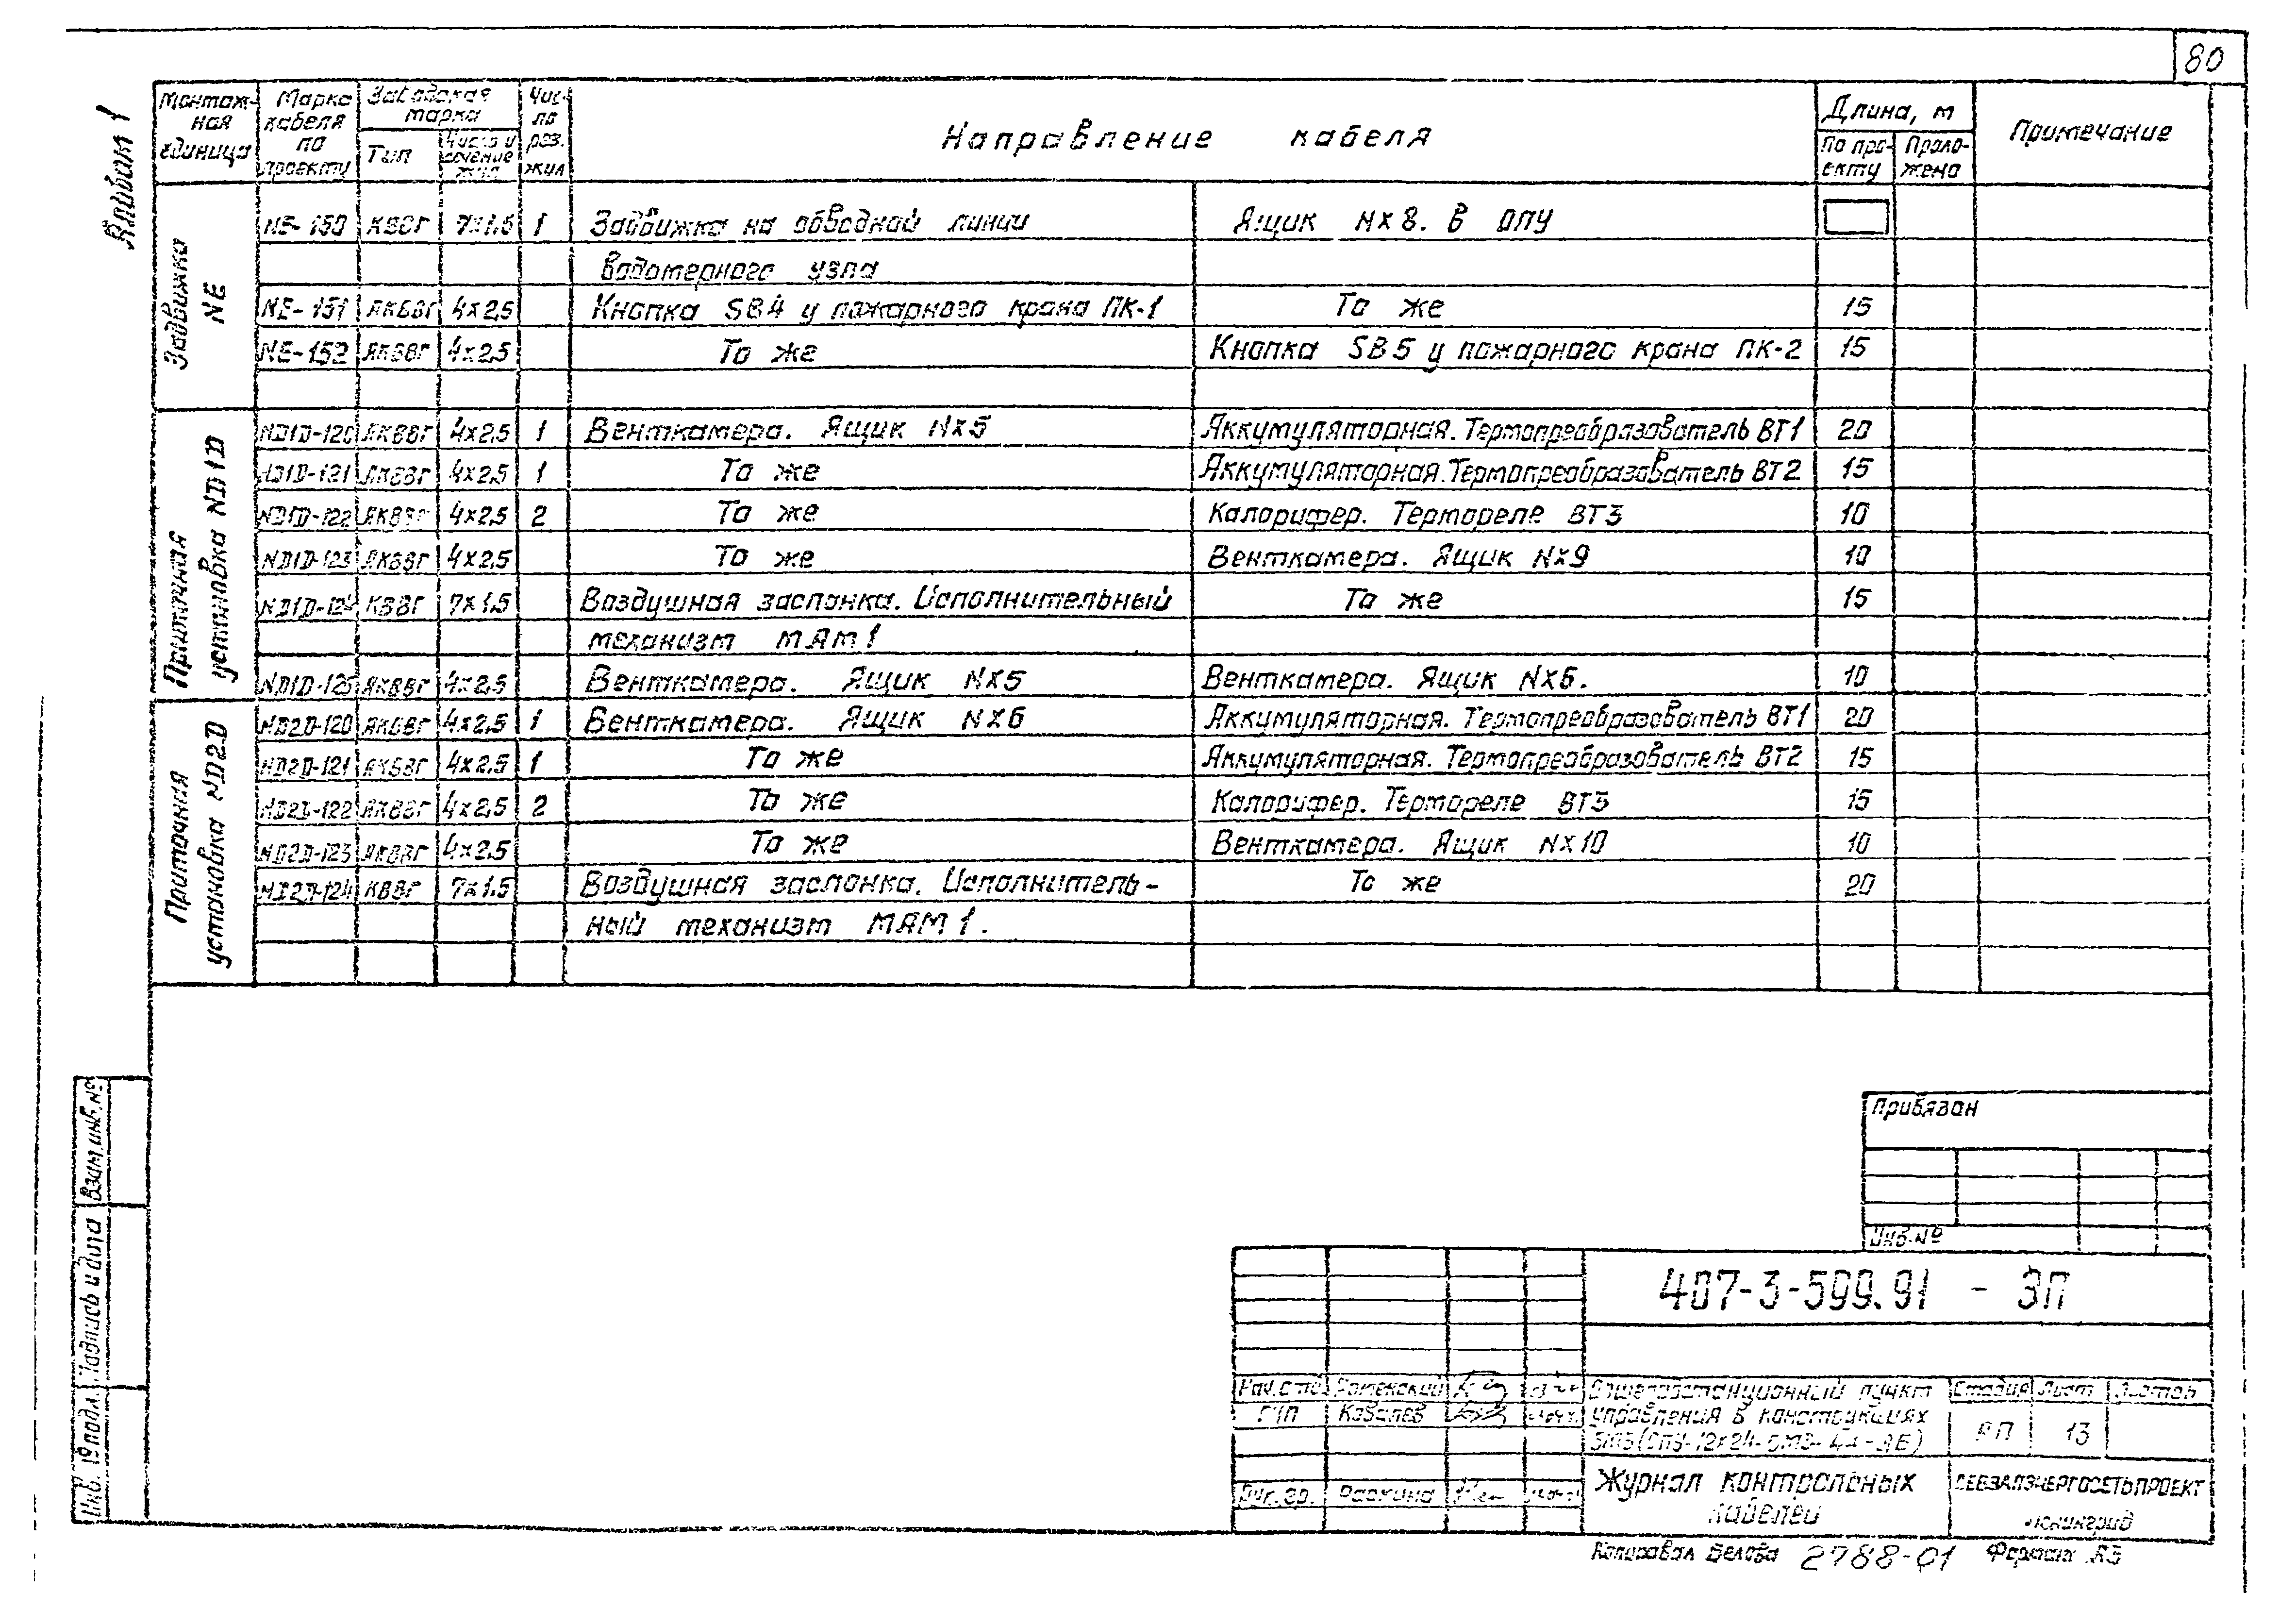 80
Альбом 1
Монтажная единица | Марка кабеля по проекту | Заводская марка | Число рез. жил | Направление кабеля | Длина, м | Примечание
Тип | Число и сечение жил | По проекту | Проложена
Задвижка NE
NE-150 | КВВГ | 7×1,5 | 1 | Задвижка на обводной линии | Ящик NX8. В ОПУ
водомерного узла
NE-151 | АКВВГ | 4×2,5 | Кнопка SB4 у пожарного крана ПК-1 | То же | 15
NE-152 | АКВВГ | 4×2,5 | То же | Кнопка SB5 у пожарного крана ПК-2 | 15
Приточная установка ND1D
ND1D-120 | АКВВГ | 4×2,5 | 1 | Венткамера. Ящик NX5 | Аккумуляторная. Термопреобразователь ВТ1 | 20
ND1D-121 | АКВВГ | 4×2,5 | 1 | То же | Аккумуляторная. Термопреобразователь ВТ2 | 15
ND1D-122 | АКВВГ | 4×2,5 | 2 | То же | Калорифер. Термореле ВТ3 | 10
ND1D-123 | АКВВГ | 4×2,5 | То же | Венткамера. Ящик NX9 | 10
ND1D-124 | КВВГ | 7×1,5 | Воздушная заслонка. Исполнительный | То же | 15
механизм МАМ1
ND1D-125 | АКВВГ | 4×2,5 | Венткамера. Ящик NX5 | Венткамера. Ящик NX6. | 10
Приточная установка ND2D
ND2D-120 | АКВВГ | 4×2,5 | 1 | Венткамера. Ящик NX6 | Аккумуляторная. Термопреобразователь ВТ1 | 20
ND2D-121 | АКВВГ | 4×2,5 | 1 | То же | Аккумуляторная. Термопреобразователь ВТ2 | 15
ND2D-122 | АКВВГ | 4×2,5 | 2 | То же | Калорифер. Термореле ВТ3 | 15
ND2D-123 | АКВВГ | 4×2,5 | То же | Венткамера. Ящик NX10 | 10
ND2D-124 | КВВГ | 7×1,5 | Воздушная заслонка. Исполнитель- | То же | 20
ный механизм МАМ1.
Взам. инв. №
Подпись и дата
Инв. № подл.
Привязан
Инв. №
407-3-599.91 - ЭП
Нач. отд. Роменский | Общеподстанционный пункт | Стадия | Лист | Листов
ГИП Ковалев | управления в конструкциях | РП | 13
Рук. гр. Раскина | Журнал контрольных | СЕВЗАПЭНЕРГОСЕТЬПРОЕКТ
кабелей | Ленинград
Копировал Белова 2788-01 Формат А3